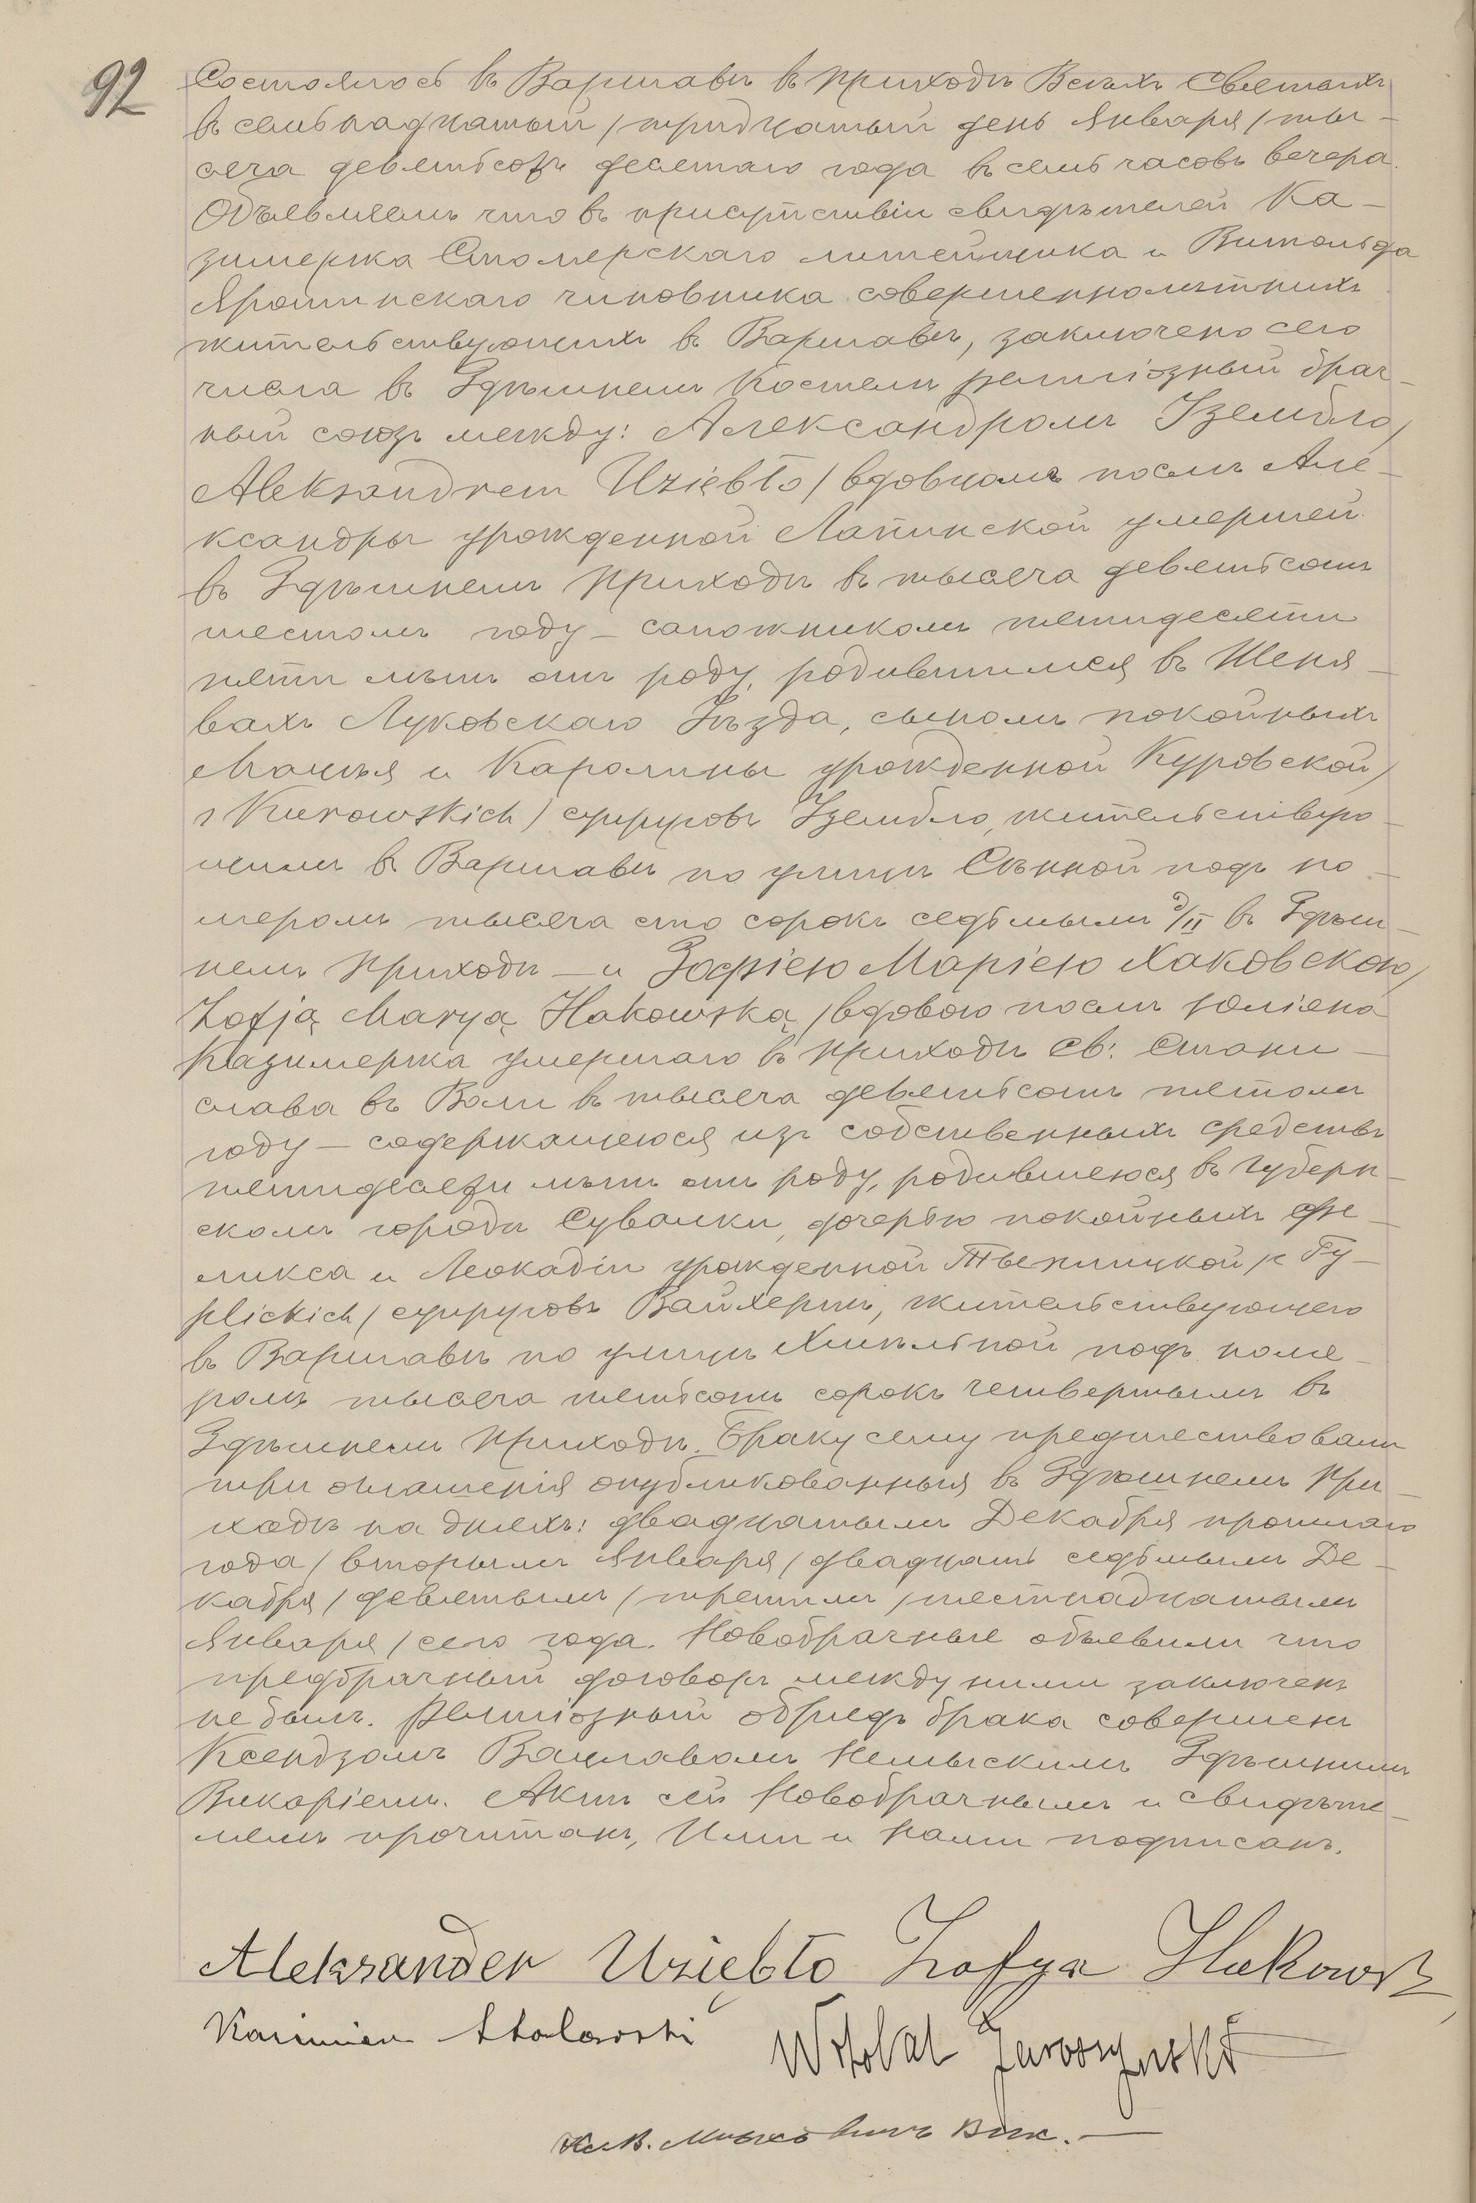 92
Состоялось въ Варшавѣ въ приходѣ Всѣхъ Святыхъ
въ семьнадцатый /тридцатый день Января/ ты-
сяча девятьсотъ десятаго года въ семь часовъ вечера.
Объявляемъ что въ присутствіи свидѣтелей Ка-
зимержа литейщика и Витольда
чиновника совершеннолѣтнихъ
жительствующихъ въ Варшавѣ, заключено сего
числа въ Здѣшнемъ Костелѣ религіозный брач-
ный союзъ между: Александромъ Узембло/
Aleksandrem Uziębło/ вдовцомъ послѣ Але-
ксандры урожденной Лапинской умершей
въ Здѣшнемъ приходѣ въ тысяча девятьсотъ
шестомъ году – сапожникомъ пятидесяти
пяти лѣтъ отъ роду, родившимся въ Шеня-
вахъ Луковскаго Уѣзда, сыномъ покойныхъ
Мацѣя и Каролины урожденной Куровской/
z Kurowskich/ супруговъ Узембло, жительствую-
щимъ въ Варшавѣ по улицѣ Сѣнной подъ но-
меромъ тысяча сто сорокъ седьмымъ д/II въ Здѣш-
немъ приходѣ – и Зофіею Маріею Хаковскою/
Zofją Maryą Hakowską /вдовою послѣ Юліана
Казимержа умершаго въ приходѣ Св: Стани-
слава въ Воли въ тысяча девятьсотъ пятомъ
году – содержащеюся изъ собственныхъ средствъ
пятидесяти лѣтъ отъ роду, родившеюся въ Губерн-
скомъ городѣ Сувалки, дочерью покойныхъ Фе-
ликса и Леокадіи урожденной
супруговъ Вайхертъ, жительствующею
въ Варшавѣ по улицѣ Хмѣльной подъ номе-
ромъ тысяча пятьсотъ сорокъ четвертымъ въ
Здѣшнемъ приходѣ. Браку сему предшествовали
три оглашенія опубликованныя въ Здѣшнемъ при-
ходѣ на дняхъ: двадцатымъ Декабря прошлаго
года /вторымъ Января/ двадцать седьмымъ Де-
кабря /девятымъ/ третимъ /шестнадцатымъ
Января/ сего года. Новобрачные объявили что
предбрачный договоръ между ними заключенъ
не былъ. Религіозный обрядъ брака совершенъ
Ксендзомъ Вацлавомъ Здѣшнимъ
Викаріемъ. Актъ сей Новобрачнымъ и свидѣте-
лямъ прочитанъ, Ими и Нами подписанъ.
Aleksander Uziębło Zofya Hakowska
Kazimierz Witold Jaroszyński
Кс.В.